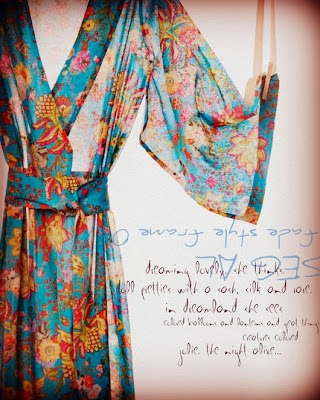 fade style frame
dreaming lovely, she thinks
pretties with a sash, silk and
in dreamland she sees
colored balloons and lanterns and things
creature colored
jolie, the night alive...